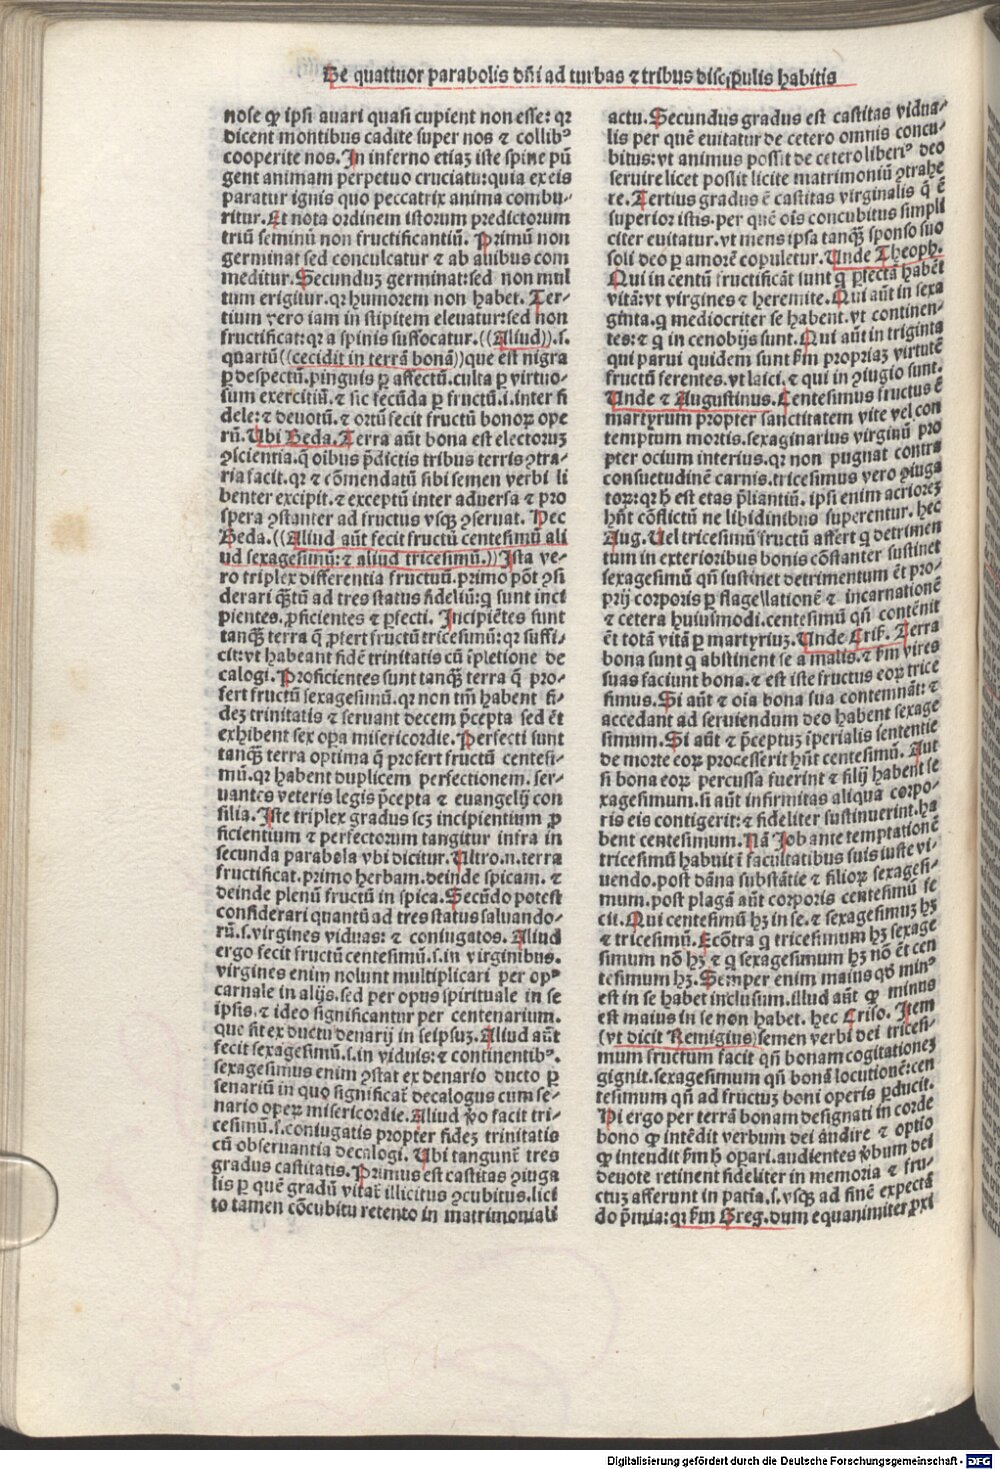 De quattuor parabolis dñi ad turbas ⁊ tribus discipulis habitis
nose ꝙ ipsi auari quasi cupient non esse: qꝛ
dicent montibus cadite super nos ⁊ collibꝰ
cooperite nos. In inferno etiaꝫ iste spine pū
gent animam perpetuo cruciatu: quia ex eis
paratur ignis quo peccatrix anima combu⸗
ritur. Et nota ordinem istorum predictorum
triū seminū non fructificantiū. Primū non
germinat sed conculcatur ⁊ ab auibus com
meditur. Secunduꝫ germinat: sed non mul
tum erigitur. qꝛ humorem non habet. Ter⸗
tium vero iam in stipitem eleuatur: sed non
fructificat: qꝛ a spinis suffocatur. ((Aliud)). s.
quartū ((cecidit in terrā bonā)) que est nigra
ꝑ despectū. pinguis ꝑ affectū. culta ꝑ virtuo⸗
sum exercitiū. ⁊ sic fecūda ꝑ fructū. i. inter fi
dele: ⁊ deuotū. ⁊ ortū fecit fructū bonoꝝ ope
rū. Ubi Beda. Terra aūt bona est electoruꝫ
ꝯscientia. q̄ oībus p̄dictis tribus terris ꝯtra⸗
ria facit. qꝛ ⁊ cōmendatū sibi semen verbi li
benter excipit. ⁊ exceptū inter aduersa ⁊ pro
spera ꝯstanter ad fructus vsqꝫ ꝯseruat. Hec
Beda. ((Aliud aūt fecit fructū centesimū ali
ud sexagesimū: ⁊ aliud tricesimū.)) Ista ve⸗
ro triplex differentia fructuū. primo pōt ꝯsi
derari qꝫtū ad tres status fideliū: q̄ sunt inci
pientes. ꝓficientes ⁊ ꝑfecti. Incipiētes sunt
tanqꝫ terra q̄ ꝓfert fructū tricesimū: qꝛ suffi⸗
cit: vt habeant fidē trinitatis cū īpletione de
calogi. Proficientes sunt tanqꝫ terra q̄ pro⸗
fert fructū sexagesimū. qꝛ non tm̄ habent fi⸗
deꝫ trinitatis ⁊ seruant decem p̄cepta sed ēt
exhibent sex oꝑa misericordie. Perfecti sunt
tanqꝫ terra optima q̄ profert fructū centesi⸗
mū. qꝛ habent duplicem perfectionem. ser⸗
uantes veteris legis p̄cepta ⁊ euangelij con
silia. Iste triplex gradus scꝫ incipientium ꝓ
ficientium ⁊ perfectorum tangitur infra in
secunda parabola vbi dicitur. Ultro. n. terra
fructificat. primo herbam. deinde spicam. ⁊
deinde plenū fructū in spica. Secūdo potest
considerari quantū ad tres status saluando⸗
rū. s. virgines viduas: ⁊ coniugatos. Aliud
ergo fecit fructū centesimū. s. in virginibus.
virgines enim nolunt multiplicari per opꝰ
carnale in alijs. sed per opus spirituale in se
ipsis. ⁊ ideo significantur per centenarium.
que fit ex ductu denarij in seipsuꝫ. Aliud aūt
fecit sexagesimū. s. in viduis: ⁊ continentibꝰ.
sexagesimus enim ꝯstat ex denario ducto ꝑ
senariū in quo significat̄ decalogus cum se⸗
nario operꝝ misericordie. Aliud ꝟo facit tri⸗
cesimū. s. coniugatis propter fideꝫ trinitatis
cū obseruantia decalogi. Ubi tangunt̄ tres
gradus castitatis. Primus est castitas ꝯiuga
lis ꝑ quē gradū vitat̄ illicitus ꝯcubitus. lici
to tamen cōcubitu retento in matrimoniali
actu. Secundus gradus est castitas vidua⸗
lis per quē euitatur de cetero omnis concu⸗
bitus: vt animus possit de cetero liberiꝰ deo
seruire licet possit licite matrimoniū ꝯtrahe
re. Tertius gradus ē castitas virginalis q̄ ē
superior istis. per quē oīs concubitus simpli
citer euitatur. vt mens ipsa tanqꝫ sponso suo
soli deo ꝑ amorē copuletur. Unde Theoph.
Qui in centū fructificāt sunt q̄ ꝑfectā habēt
vitā: vt virgines ⁊ heremite. Qui aūt in sexa
ginta. q̄ mediocriter se habent. vt continen⸗
tes: ⁊ q̄ in cenobijs sunt. Qui aūt in triginta
qui parui quidem sunt ẜm propriaꝫ virtutē
fructū ferentes. vt laici. ⁊ qui in ꝯiugio sunt.
Unde ⁊ Augustinus. Centesimus fructus ē
martyrum propter sanctitatem vite vel con
temptum mortis. sexaginarius virginū pro
pter ocium interius. qꝛ non pugnat contra
consuetudinē carnis. tricesimus vero ꝯiuga
torꝝ: qꝛ h̄ est etas p̄liantiū. ipsi enim acriorez
hn̄t cōflictū ne libidinibus superentur. hec
Aug. Uel tricesimū fructū affert q̄ detrimen
tum in exterioribus bonis cōstanter sustinet
sexagesimū qn̄ sustinet detrimentum ēt pro⸗
prij corporis ꝑ flagellationē ⁊ incarnationē
⁊ cetera huiusmodi. centesimū qn̄ contēnit
ēt totā vitā ꝑ martyriuꝫ. Unde Cris. Terra
bona sunt q̄ abstinent se a malis. ⁊ ẜm vires
suas faciunt bona. ⁊ est iste fructus eoꝝ trice
simus. Si aūt ⁊ oīa bona sua contemnāt: ⁊
accedant ad seruiendum deo habent sexage
simum. Si aūt ⁊ p̄ceptuꝫ īperialis sententie
de morte eoꝝ processerit hn̄t centesimū. Aut
si bona eoꝝ percussa fuerint ⁊ filij habent se
xagesimum. si aūt infirmitas aliqua corpo⸗
ris eis contigerit: ⁊ fideliter sustinuerint. ha
bent centesimum. Nā Job ante temptationē
tricesimū habuit ī facultatibus suis iuste vi⸗
uendo. post dāna substātie ⁊ filioꝝ sexagesi⸗
mum. post plagā aūt corporis centesimū fe
cit. Qui centesimū hꝫ in se. ⁊ sexagesimuꝫ hꝫ
⁊ tricesimū. Ecōtra q̄ tricesimum hꝫ sexage
simum nō hꝫ ⁊ q̄ sexagesimum hꝫ nō ēt cen
tesimum hꝫ. Semper enim maius qd̄ minꝰ
est in se habet inclusum. illud aūt ꝙ minus
est maius in se non habet. hec Criso. Item
(vt dicit Remigius) semen verbi dei tricesi⸗
mum fructum facit qn̄ bonam cogitationeꝫ
gignit. sexagesimum qn̄ bonā locutionē: cen
tesimum qn̄ ad fructuꝫ boni operis ꝑducit.
Hi ergo per terrā bonam designati in corde
bono ꝙ intēdit verbum dei audire ⁊ optio
ꝙ intendit ẜm h̄ opari. audientes ꝟbum dei
deuote retinent fideliter in memoria ⁊ fru⸗
ctuꝫ afferunt in patīa. s. vsqꝫ ad finē expectā
do p̄mia: qꝛ ẜm Greg. dum equanimiter ꝓxi
Digitalisierung gefördert durch die Deutsche Forschungsgemeinschaft - DFG